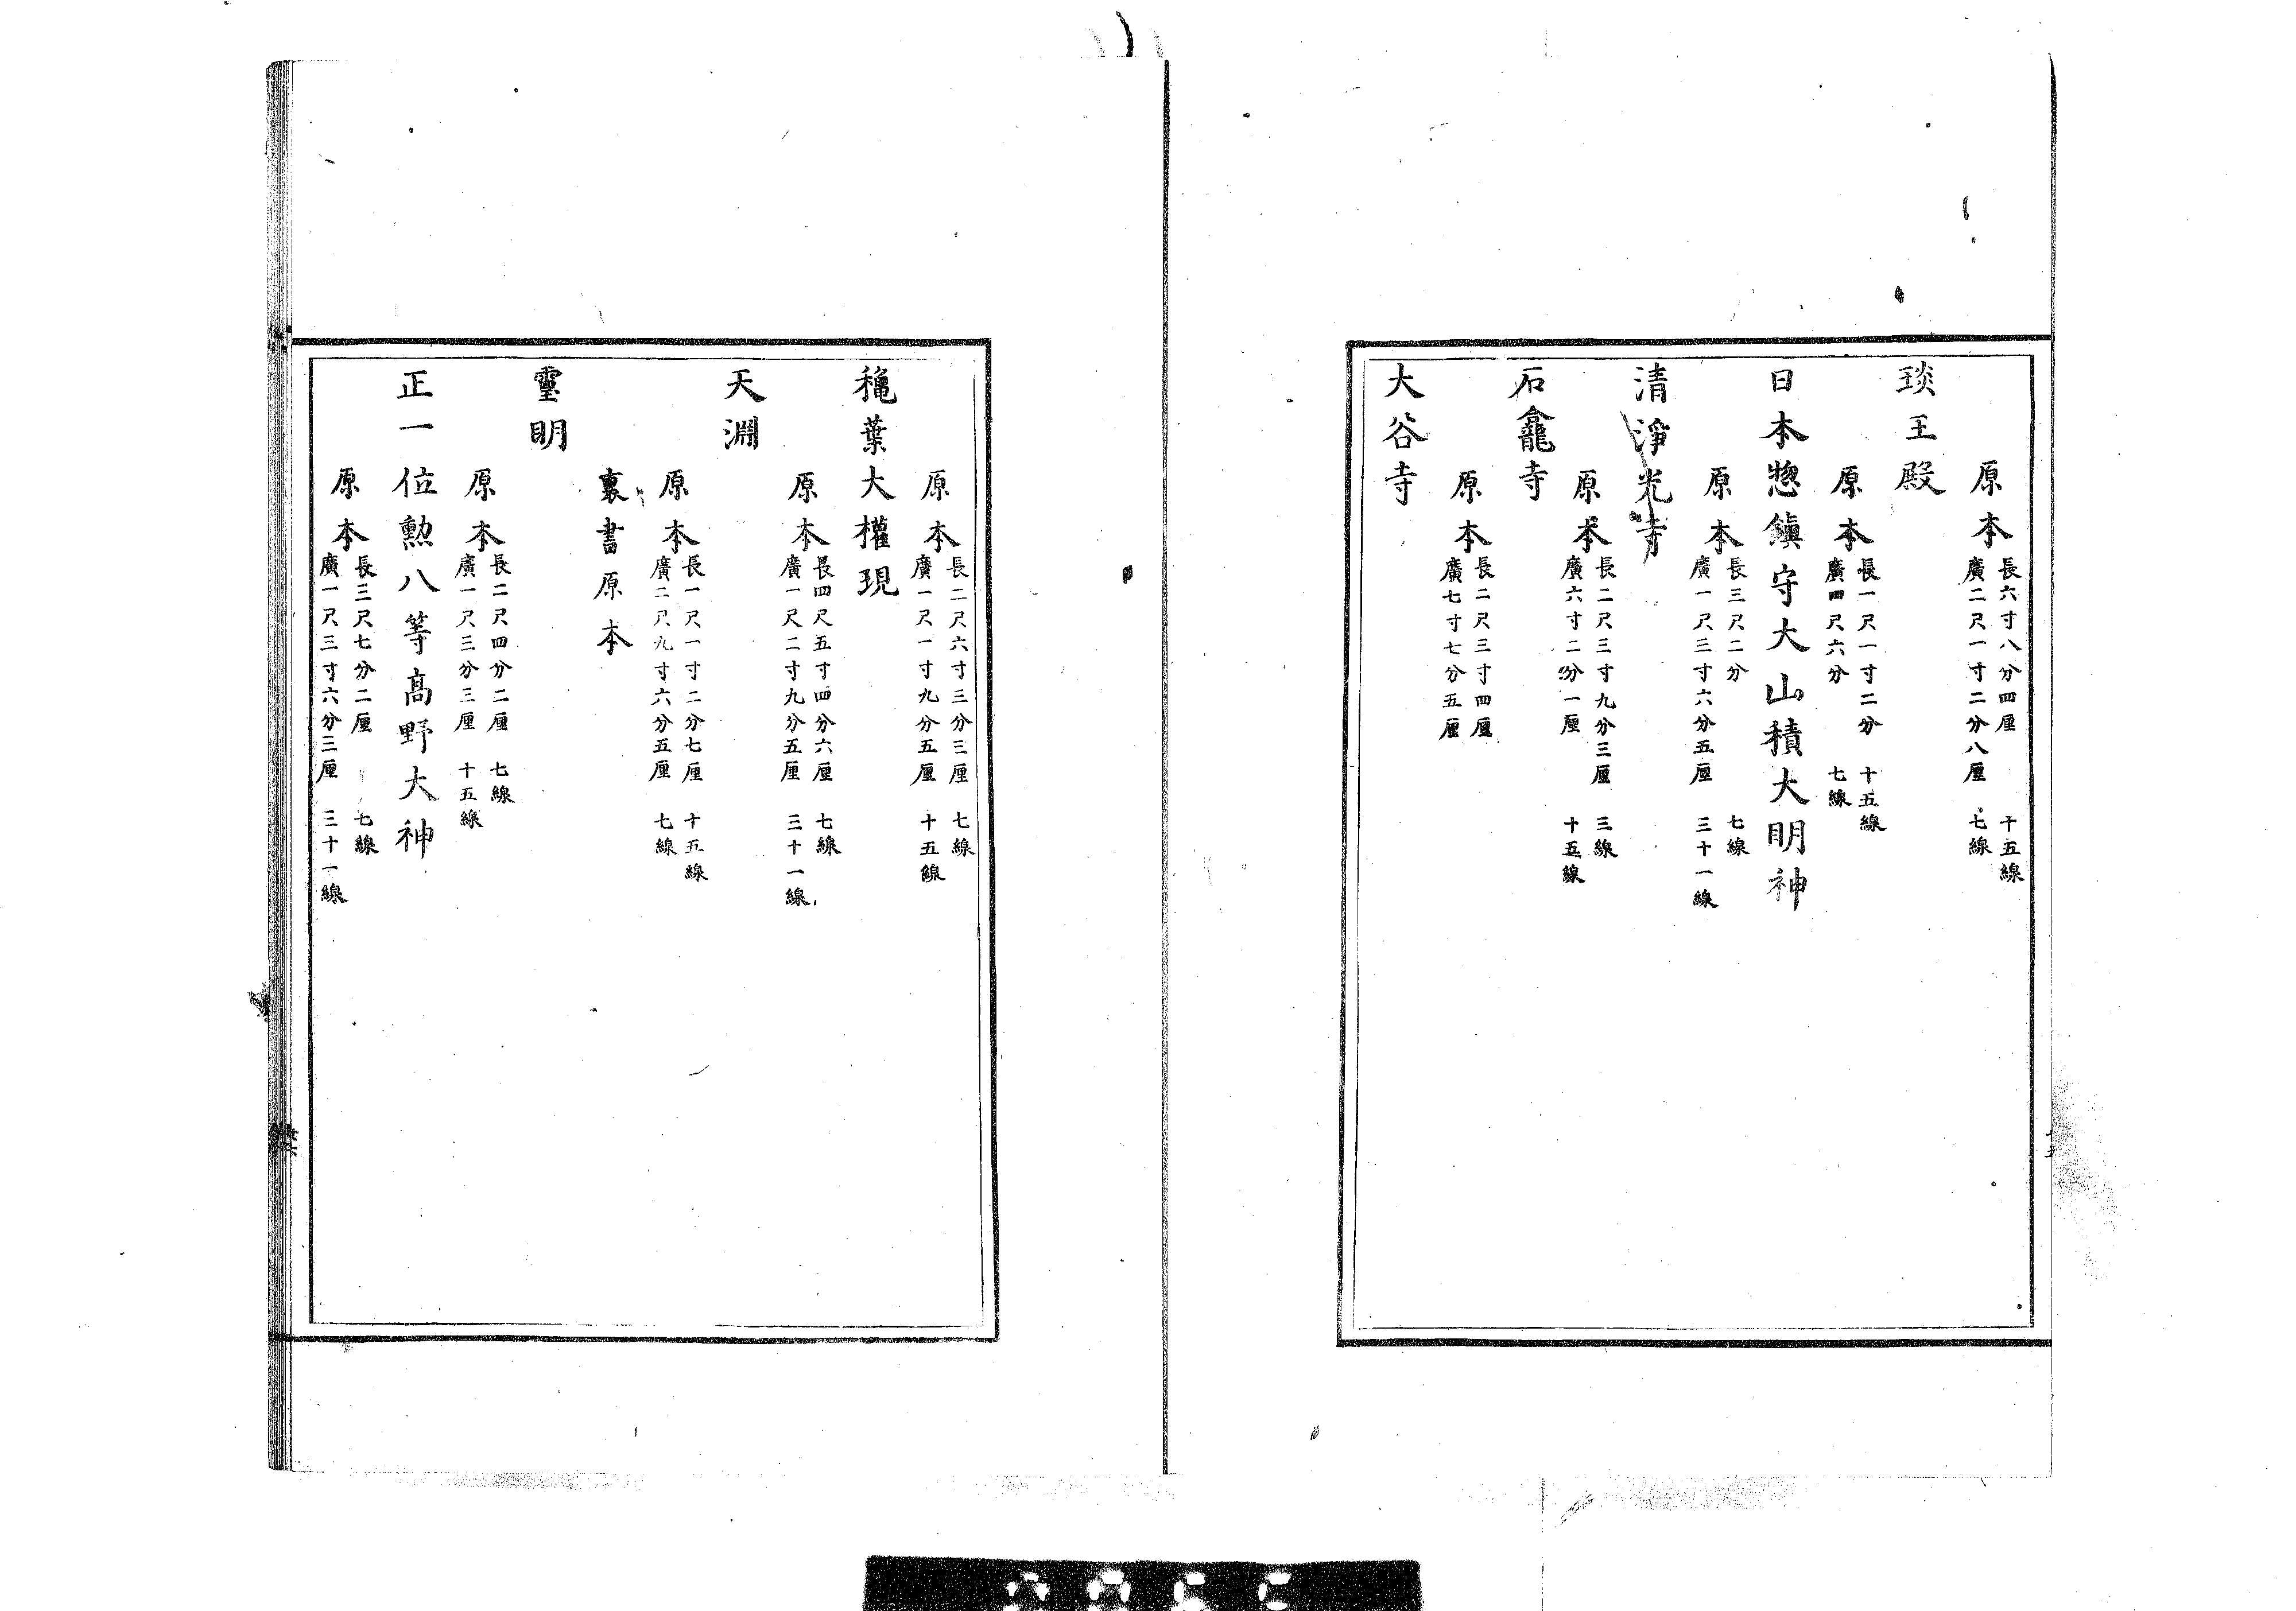 原本 長六寸八分四厘 十五線
廣二尺一寸二分八厘 七線
琰王殿
原本 長一尺一寸二分 十五線
廣四尺六分 七線
日本惣鎮守大山積大明神
原本 長三尺二分 七線
廣一尺三寸六分五厘 三十一線
清淨光寺
原本 長二尺三寸九分三厘 三線
廣六寸二分一厘 十五線
石龕寺
原本 長二尺三寸四厘
廣七寸七分五厘
大谷寺
原本 長二尺六寸三分三厘 七線
廣一尺一寸九分五厘 十五線
穐葉大權現
原本 長四尺五寸四分六厘 七線
廣一尺二寸九分五厘 三十一線
天淵
原本 長一尺一寸二分七厘 十五線
廣二尺九寸六分五厘 七線
裏書原本
靈明
原本 長二尺四分二厘 七線
廣一尺三分三厘 十五線
正一位勲八等高野大神
原本 長三尺七分二厘 七線
廣一尺三寸六分三厘 三十一線